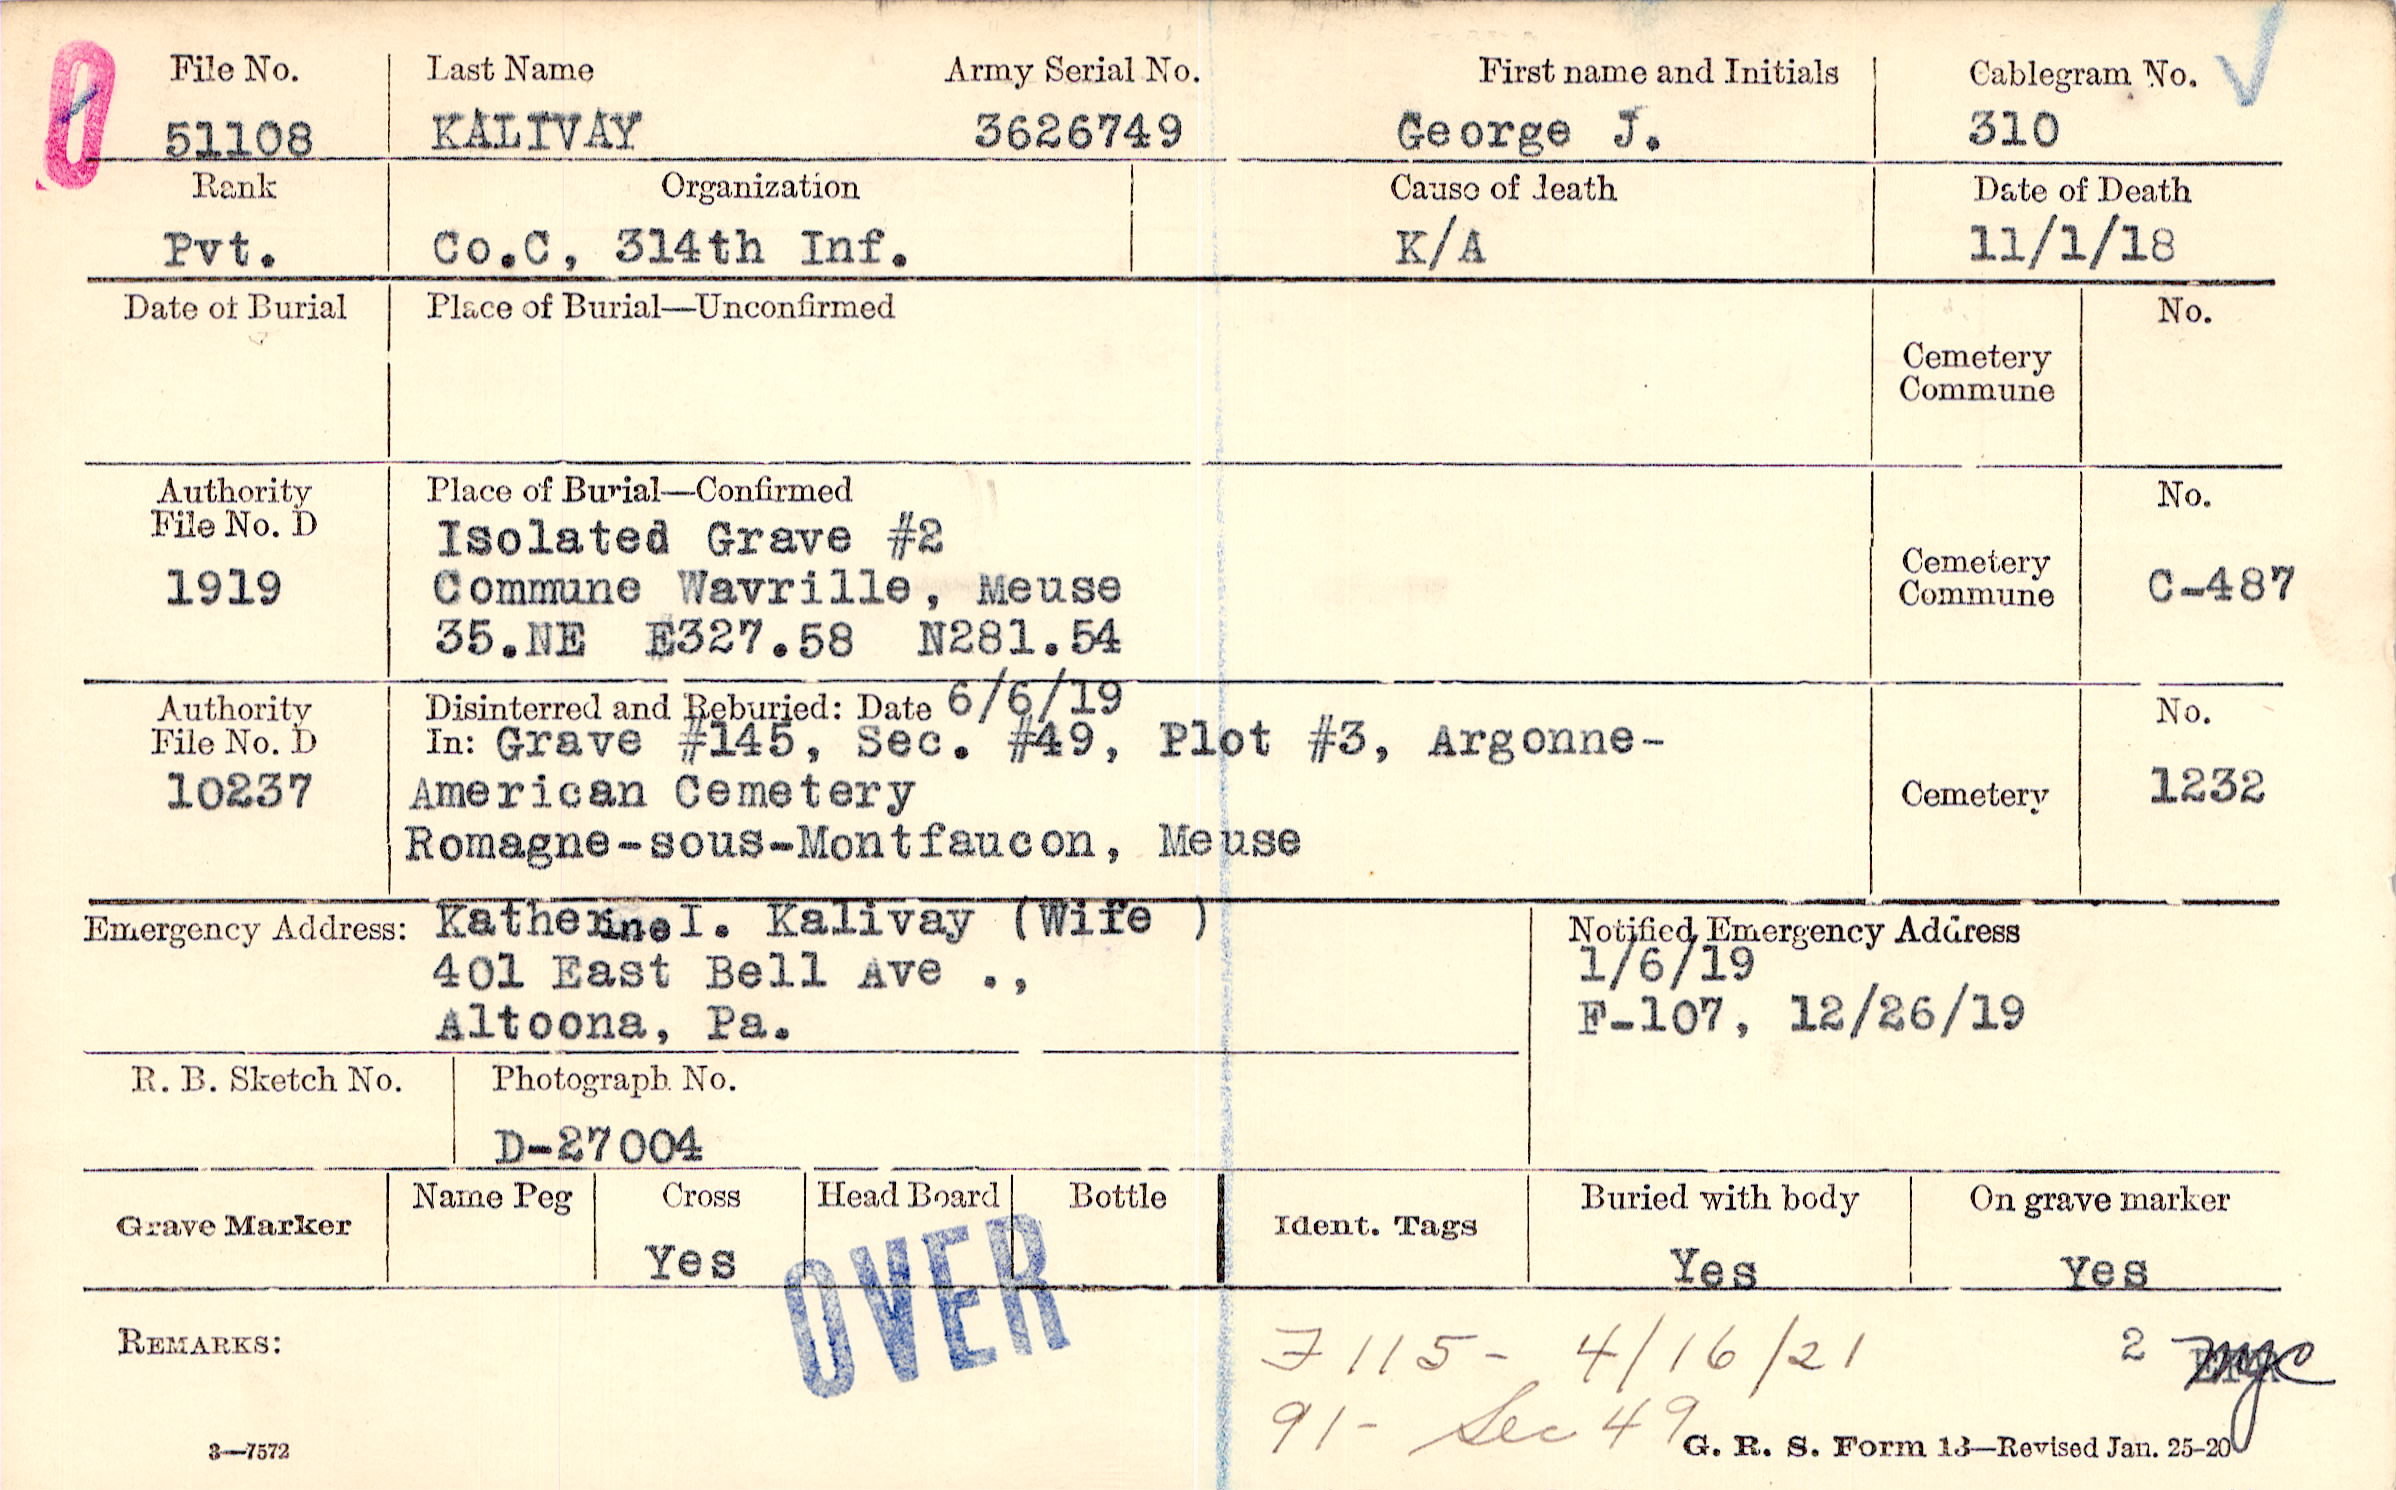 File No. Last Name Army Serial No. First name and Initials Cablegram No.
51108 KALIVAY 3626749 George J. 310
Rank Organization Cause of death Date of Death
Pvt. Co.C, 314th Inf. K/A 11/1/18
Date of Burial Place of Burial—Unconfirmed No.
Cemetery
Commune
Authority Place of Burial—Confirmed No.
File No. D
Isolated Grave #2
1919 Commune Wavrille, Meuse Cemetery
Commune C-487
35.NE E327.58 N281.54
Authority Disinterred and Reburied: Date 6/6/19 No.
File No. D In: Grave #145, Sec. #49, Plot #3, Argonne-
10237 American Cemetery Cemetery 1232
Romagne-sous-Montfaucon, Meuse
Emergency Address: Katherine I. Kalivay (Wife ) Notified Emergency Address
401 East Bell Ave ., 1/6/19
Altoona, Pa. F-107, 12/26/19
R. B. Sketch No. Photograph No.
D-27004
Grave Marker Name Peg Cross Head Board Bottle Ident. Tags Buried with body On grave marker
Yes Yes Yes
OVER
REMARKS: F115- 4/16/21 2 mgc
91- Sec 49
3—7572 G. R. S. Form 13—Revised Jan. 25-20